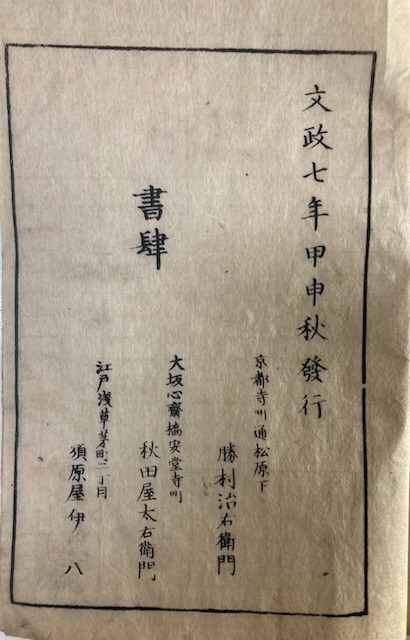 文政七年甲申秋發行
京都寺町通松原下
勝村治右衛門
書肆
大坂心齋橋安堂寺町
秋田屋太右衛門
江戸淺草茅町二丁目
須原屋伊八